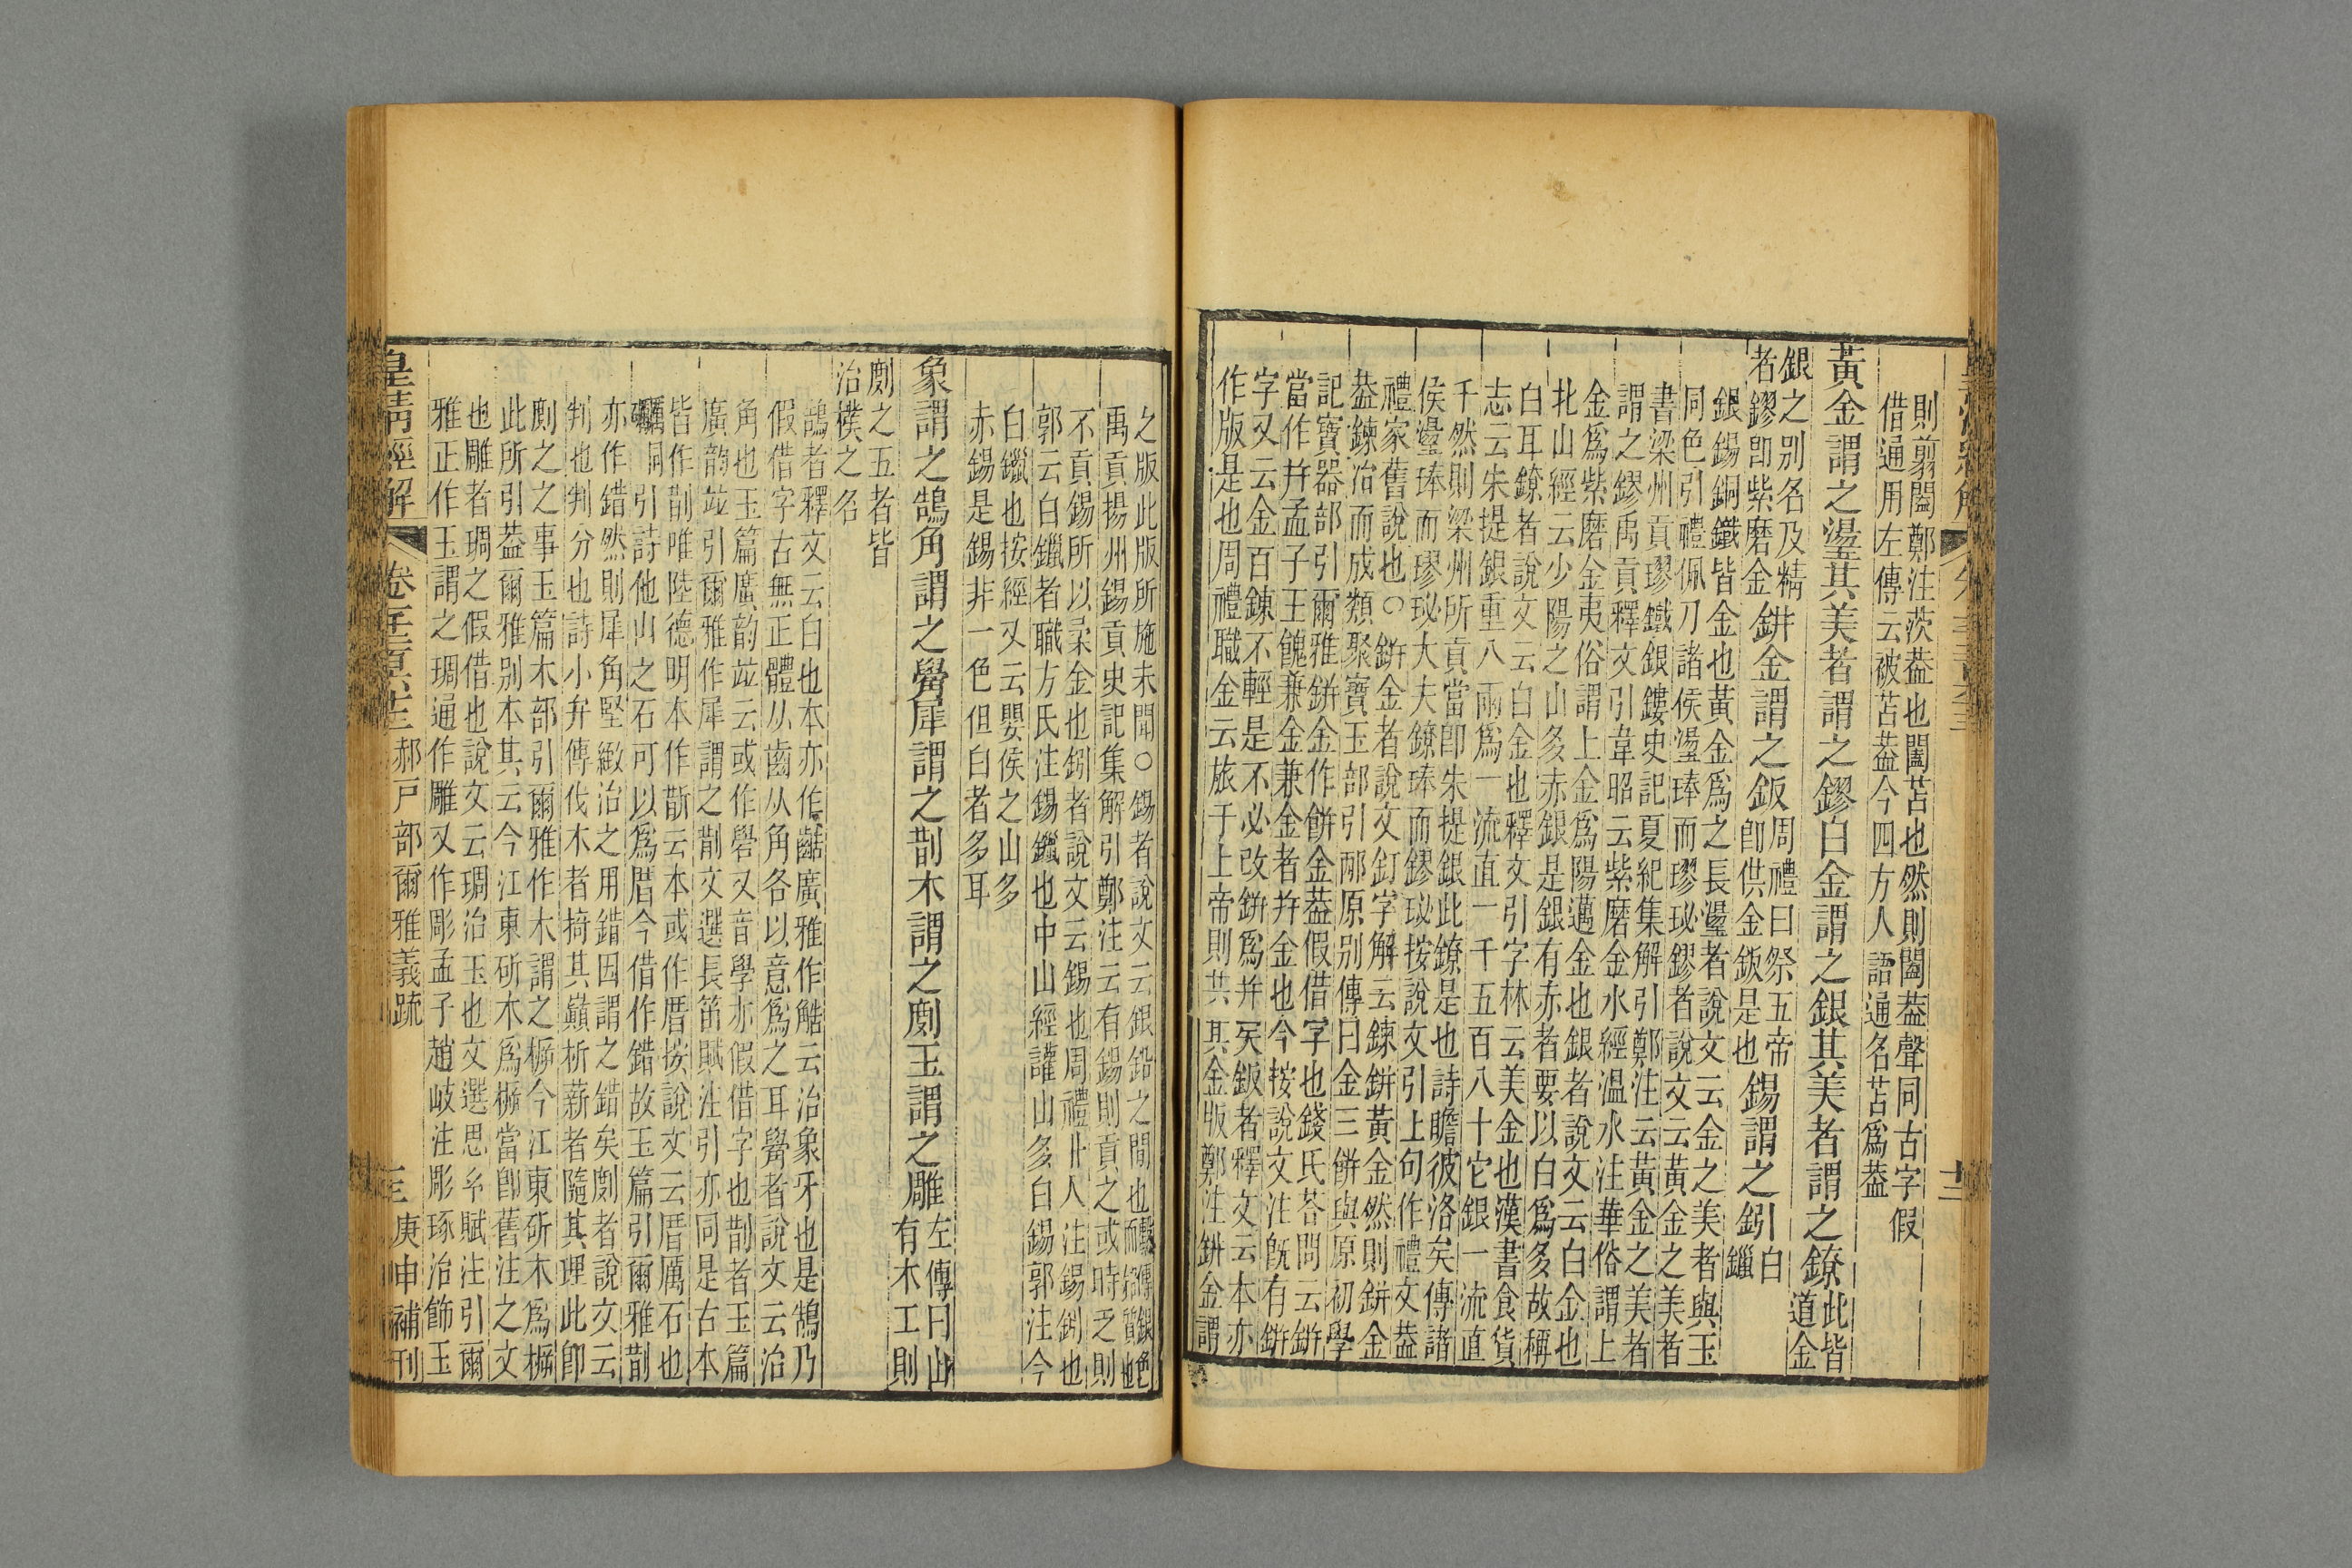 則翦闔鄭注茨葢也闔苫也然則闔葢聲同古字假
借通用左傳云被苫葢今四方人語通名苫爲葢
黃金謂之璗其美者謂之鏐白金謂之銀其美者謂之鐐此皆
道金
銀之別名及精
者鏐卽紫磨金鉼金謂之鈑周禮曰祭五帝
卽供金鈑是也錫謂之鈏白
鑞
銀錫銅鐵皆金也黃金爲之長璗者說文云金之美者與玉
同色引禮佩刀諸侯璗琫而璆珌鏐者說文云黃金之美者
書梁州貢璆鐵銀鏤史記夏紀集解引鄭注云黃金之美者
謂之鏐禹貢釋文引韋昭云紫磨金水經溫水注華俗謂上
金爲紫磨金夷俗謂上金爲陽邁金也銀者說文云白金也
北山經云少陽之山多赤銀是銀有赤者要以白爲多故稱
白耳鐐者說文云白金也釋文引字林云美金也漢書食貨
志云朱提銀重八兩爲一流直一千五百八十它銀一流直
千然則梁州所貢當卽朱提銀此鐐是也詩瞻彼洛矣傳諸
侯璗琫而璆珌大夫鐐琫而鏐珌按說文引上句作禮文葢
禮家舊說也○鉼金者說文釘字解云鍊鉼黃金然則鉼金
葢鍊冶而成類聚寶玉部引邴原別傳曰金三餅與原初學
記寶器部引爾雅鉼金作餅金葢假借字也錢氏荅問云鉼
當作幷孟子王餽兼金兼金者幷金也今按說文注旣有鉼
字又云金百鍊不輕是不必改鉼爲幷矣鈑者釋文云本亦
作版是也周禮職金云旅于上帝則共其金版鄭注鉼金謂
之版此版所施未聞○錫者說文云銀鉛之間也
禹貢揚州錫貢史記集解引鄭注云有錫則貢之或時乏則
不貢錫所以柔金也鈏者說文云錫也周禮卝人注錫鈏也
郭云白鑞者職方氏注錫鑞也中山經讙山多白錫郭注今
白鑞也按經又云嬰侯之山多
赤錫是錫非一色但白者多耳
象謂之鵠角謂之觷犀謂之剒木謂之劇玉謂之雕左傳曰山
有木工則
劇之五者皆
治樸之名
鵠者釋文云白也本亦作𪘏廣雅作觡云治象牙也是鵠乃
假借字古無正體从齒从角各以意爲之耳觷者說文云治
角也玉篇廣韵竝云或作嶨又音學亦假借字也剒者玉篇
廣韵竝引爾雅作犀謂之剒文選長笛賦注引亦同是古本
皆作剒唯陸德明本作斮云本或作厝按說文云厝厲石也
引詩他山之石可以爲厝今借作錯故玉篇引爾雅剒
亦作錯然則犀角堅緻治之用錯因謂之錯矣劇者說文云
判也判分也詩小弁傳伐木者掎其巔析薪者隨其理此卽
劇之之事玉篇木部引爾雅作木謂之榹今江東斫木爲榹
此所引葢爾雅別本其云今江東斫木爲榹當卽舊注之文
也雕者琱之假借也說文云琱治玉也文選思玄賦注引爾
雅正作玉謂之琱通作雕又作彫孟子趙岐注彫琢治飾玉
皇淸經解
郝戶部爾雅義疏
庚申補刊